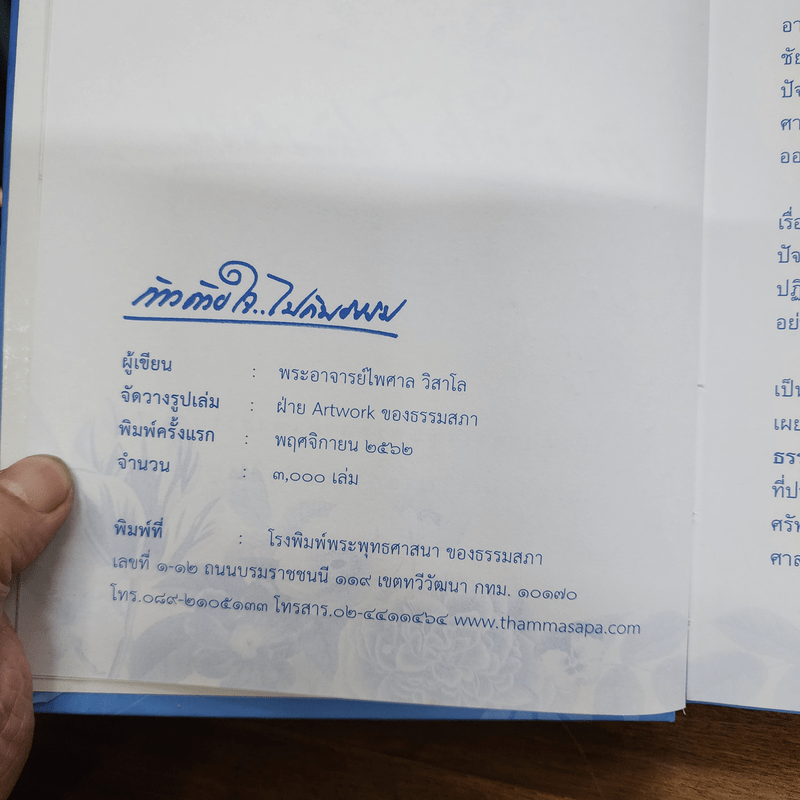 ก้าวด้วยใจ..ไปด้วยธรรม
ผู้เขียน : พระอาจารย์ไพศาล วิสาโล
จัดวางรูปเล่ม : ฝ่าย Artwork ของธรรมสภา
พิมพ์ครั้งแรก : พฤศจิกายน ๒๕๖๒
จำนวน : ๓,๐๐๐ เล่ม
พิมพ์ที่ : โรงพิมพ์พระพุทธศาสนา ของธรรมสภา
เลขที่ ๑-๑๒ ถนนบรมราชชนนี ๑๑๙ เขตทวีวัฒนา กทม. ๑๐๑๗๐
โทร.๐๘๙-๒๑๐๕๑๓๓ โทรสาร.๐๒-๔๔๑๑๔๖๔ www.thammasapa.com